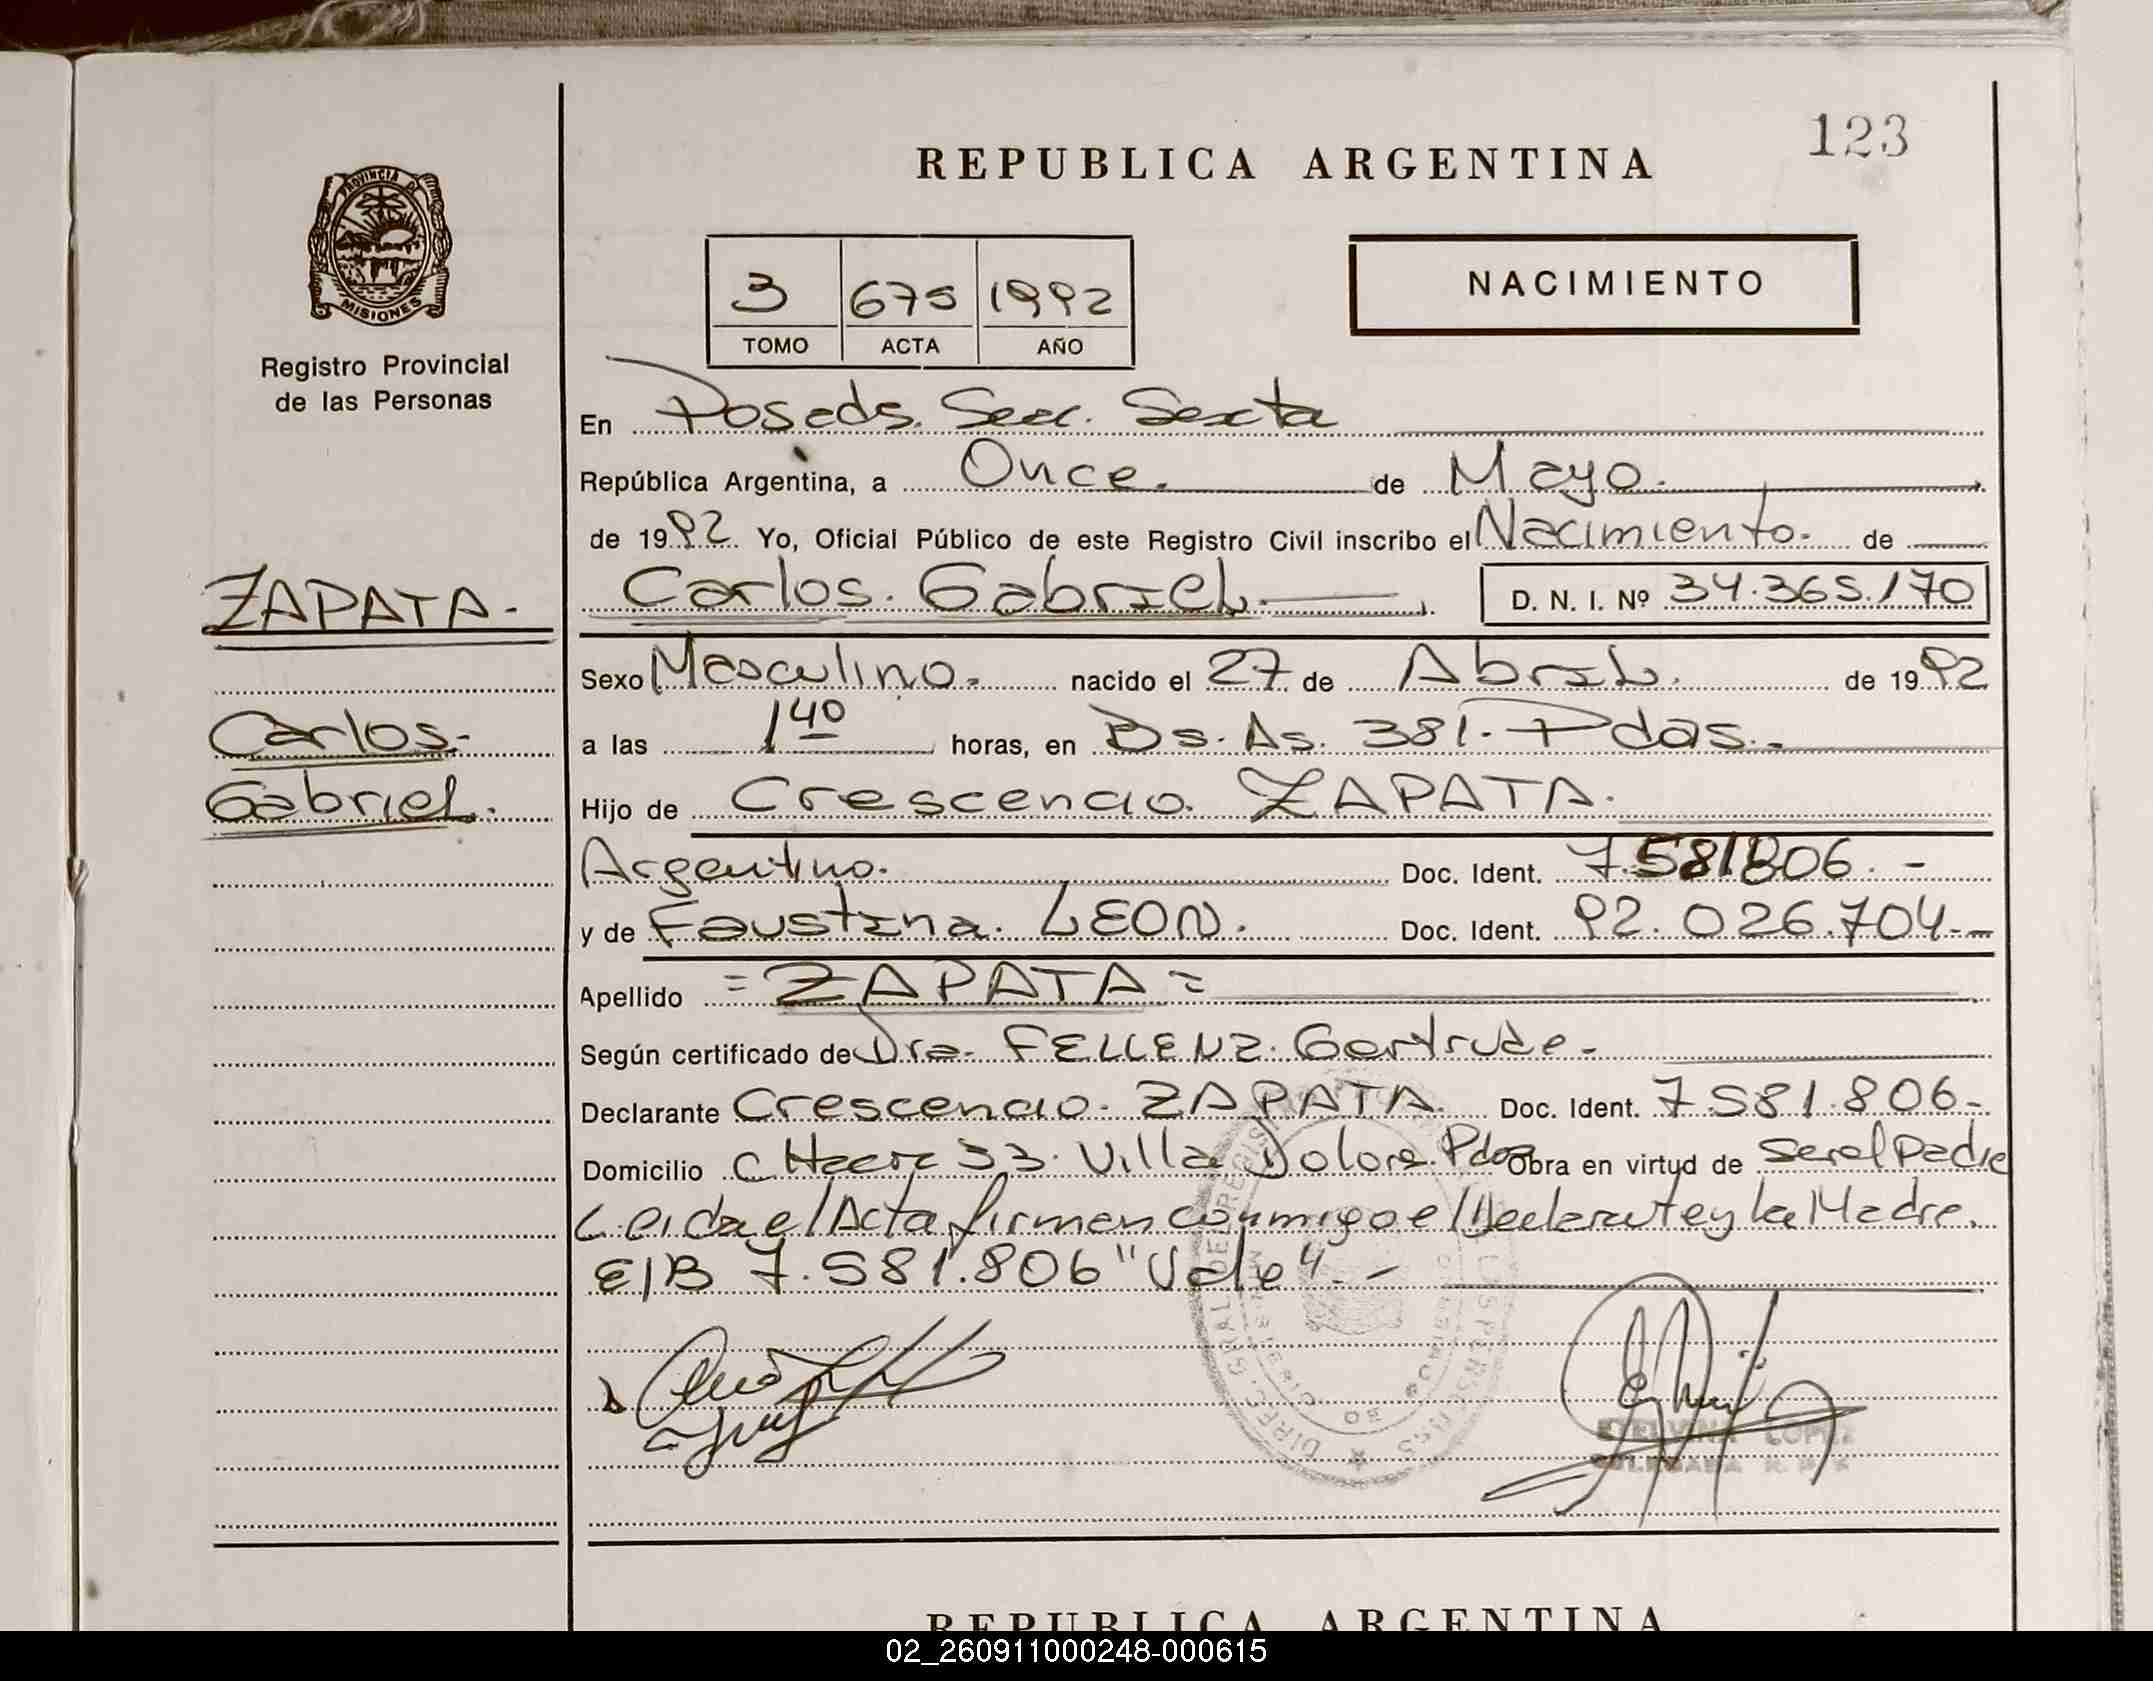 123
REPUBLICA ARGENTINA
PROVINCIA DE
MISIONES
Registro Provincial
de las Personas
3 675 1992
TOMO ACTA AÑO
NACIMIENTO
En Posads. Secc. Sexta
República Argentina, a Once. de Mayo.
de 1992 Yo, Oficial Público de este Registro Civil inscribo el Nacimiento. de
ZAPATA.
Carlos. Gabriel D. N. I. Nº 34.365.170
Sexo Masculino. nacido el 27 de Abril. de 1992
Carlos.
a las 1 40 horas, en Bs. As. 381. Pdas.
Gabriel.
Hijo de Crescencio ZAPATA.
Argentino. Doc. Ident. 7.581806.-
y de Faustina. LEON. Doc. Ident. 92.026.704.-
Apellido = ZAPATA =
Según certificado de Dra. FELLENZ. Gertrude.
Declarante Crescencio. ZAPATA. Doc. Ident. 7581.806-
Domicilio Chacra 33. Villa Dolores. Pdas Obra en virtud de ser el Padre
Leida el Acta firman conmigo el Declarante y la Madre.
E/B 7.581.806 "Vale".-
ETELVINA LOPEZ
DELEGADA R. P.
REPUBLICA ARGENTINA
02_260911000248-000615